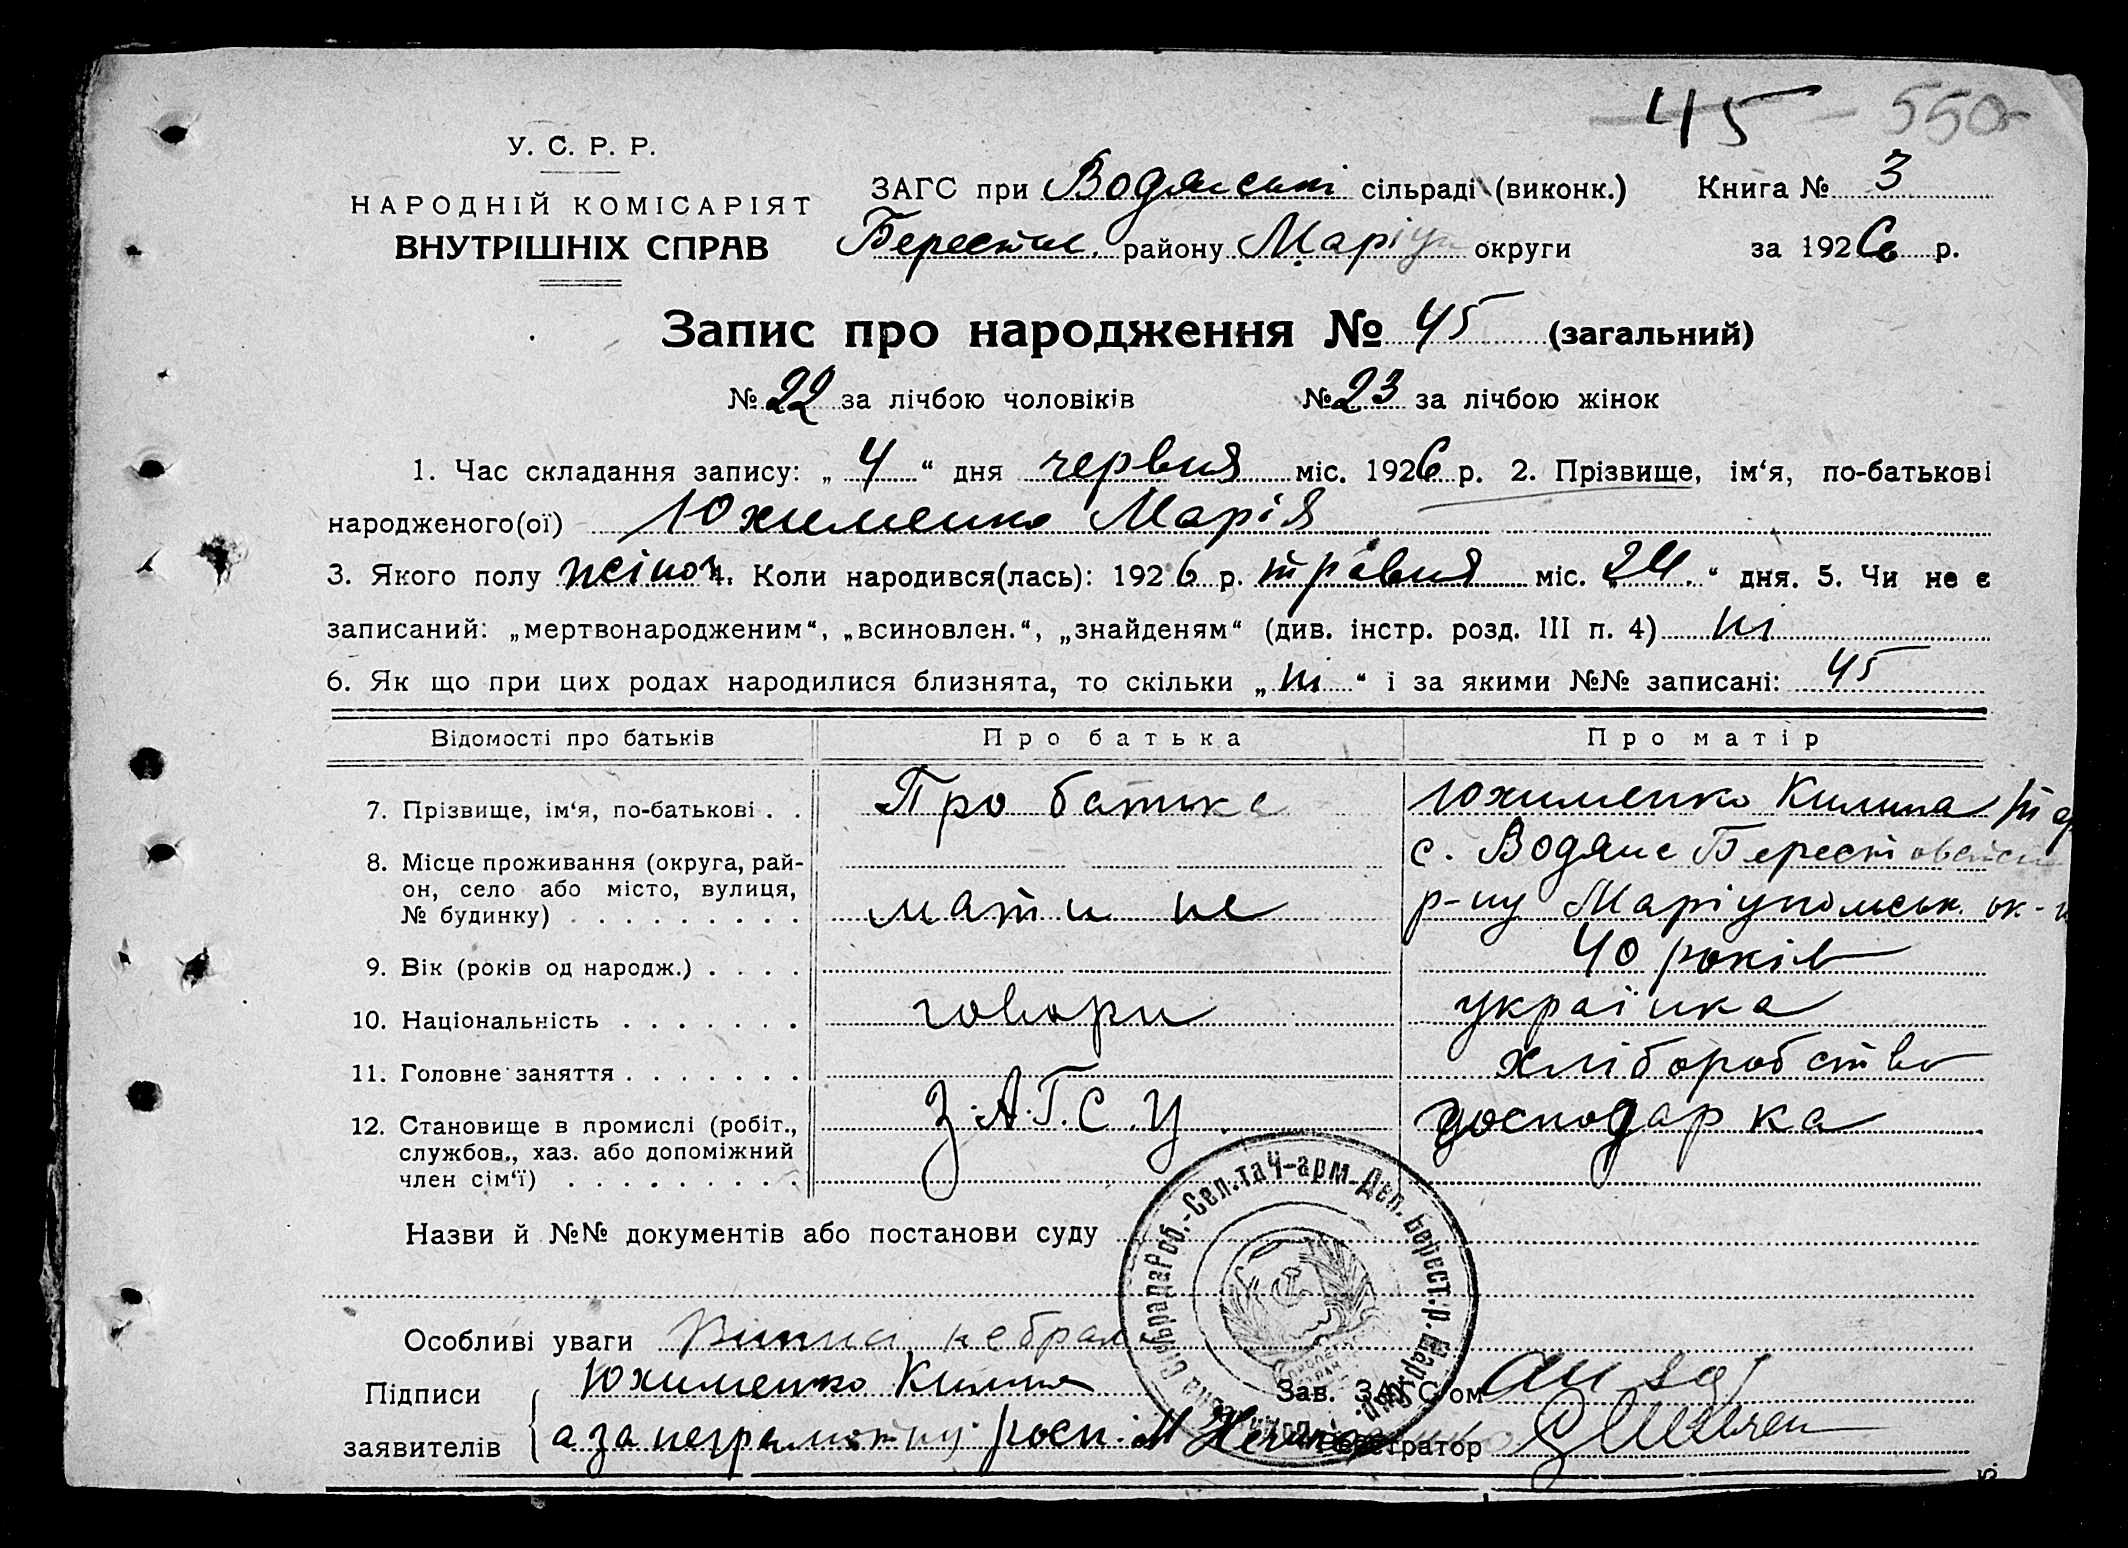 45 550
У. С. Р. Р.
НАРОДНІЙ КОМІСАРІЯТ
ВНУТРІШНІХ СПРАВ
ЗАГС при Водянські сільраді (виконк.) Книга № 3
Берестис. району Маріуп округи за 1926 р.
Запис про народження № 45 (загальний)
№ 22 за лічбою чоловіків № 23 за лічбою жінок
1. Час складання запису: „ 4 “ дня червня міс. 1926 р. 2. Прізвище, ім‘я, по-батькові
народженого(ої) Юхименко Марія
3. Якого полу жіноч. 4. Коли народився(лась): 1926 р. травня міс. „ 24 “ дня. 5. Чи не є
записаний: „мертвонародженим“, „всиновлен.“, „знайденям“ (див. інстр. розд. III п. 4) ні
6. Як що при цих родах народилися близнята, то скільки „ ні “ і за якими №№ записані: 45
Відомості про батьків Про батька Про матір
7. Прізвище, ім‘я, по-батькові . . Про батька Юхименко Килина
8. Місце проживання (округа, рай-он, село або місто, вулиця, № будинку) . . . . . . . . . мати не с. Водяне Берестовськ
р-ну Маріупольськ. ок-
9. Вік (років од народж.) . . . . 40 років
10. Національність . . . . . . . говори українка
11. Головне заняття . . . . . . . хліборобство
12. Становище в промислі (робіт., службов., хаз. або допоміжний член сім‘ї) . . . . . . . . . З.А.Г.С.У господарка
Назви й №№ документів або постанови суду
Особливі уваги Виписі не брал
Підписи Юхименко Килина Зав. ЗАГС‘ом
заявителів а за неграмотну росп. М Регістратор
Сільрада Роб.-Сел. та Ч-арм-Деп. Берест. р. Маріуп.